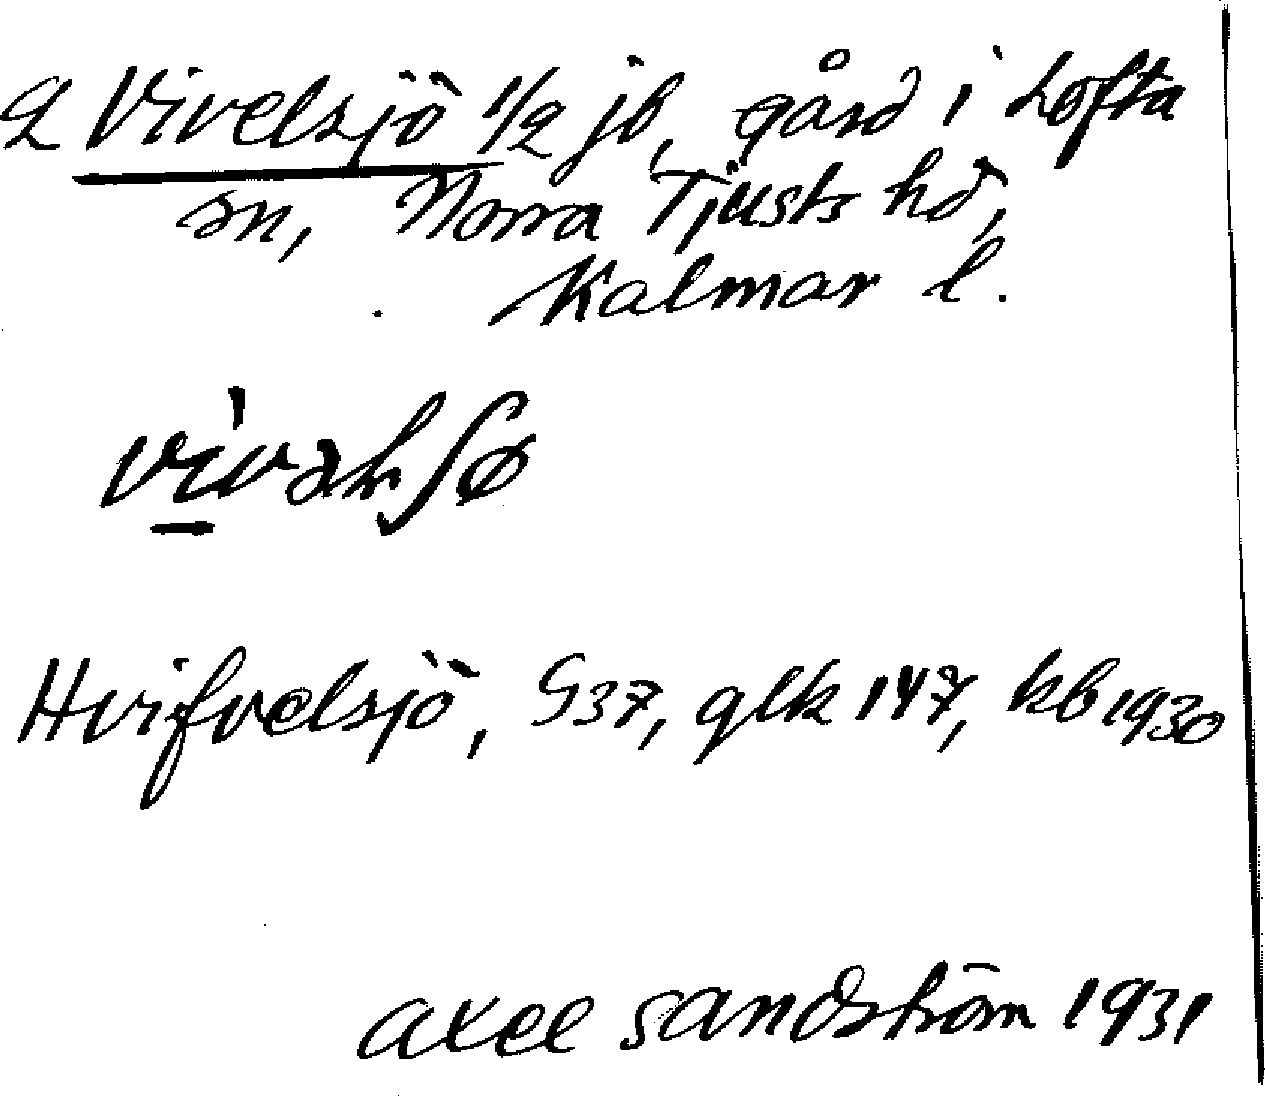 2 Vivelsjö 1/2 jb, gård i Lofta
sn, Norra Tjusts hd,
Kalmar l.
Hvifvelsjö, G37, glk 147, kb 1930
Axel Sandström 1931